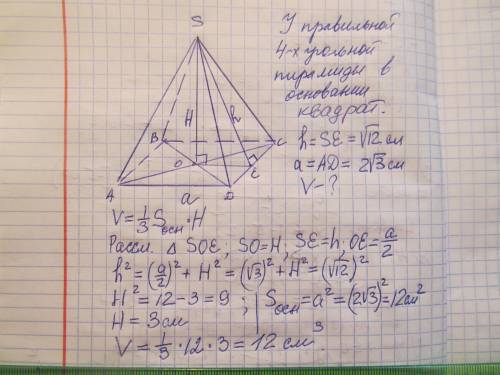 У правильной
4-х угольной
пирамиды в
основании
квадрат.
h=SE=√12 см
a=AD= 2√3 см
V-?
S
H
h
B
C
O
E
A
a
D
V=1/3 Sосн·H
Рассм. △ SOE; SO=H; SE=h; OE=a/2
h²=(a/2)²+H²=(√3)²+H²=(√12)²
H²=12-3=9 ; | Sосн=a²=(2√3)²=12см²
H=3см
V=1/3·12·3=12 см³.